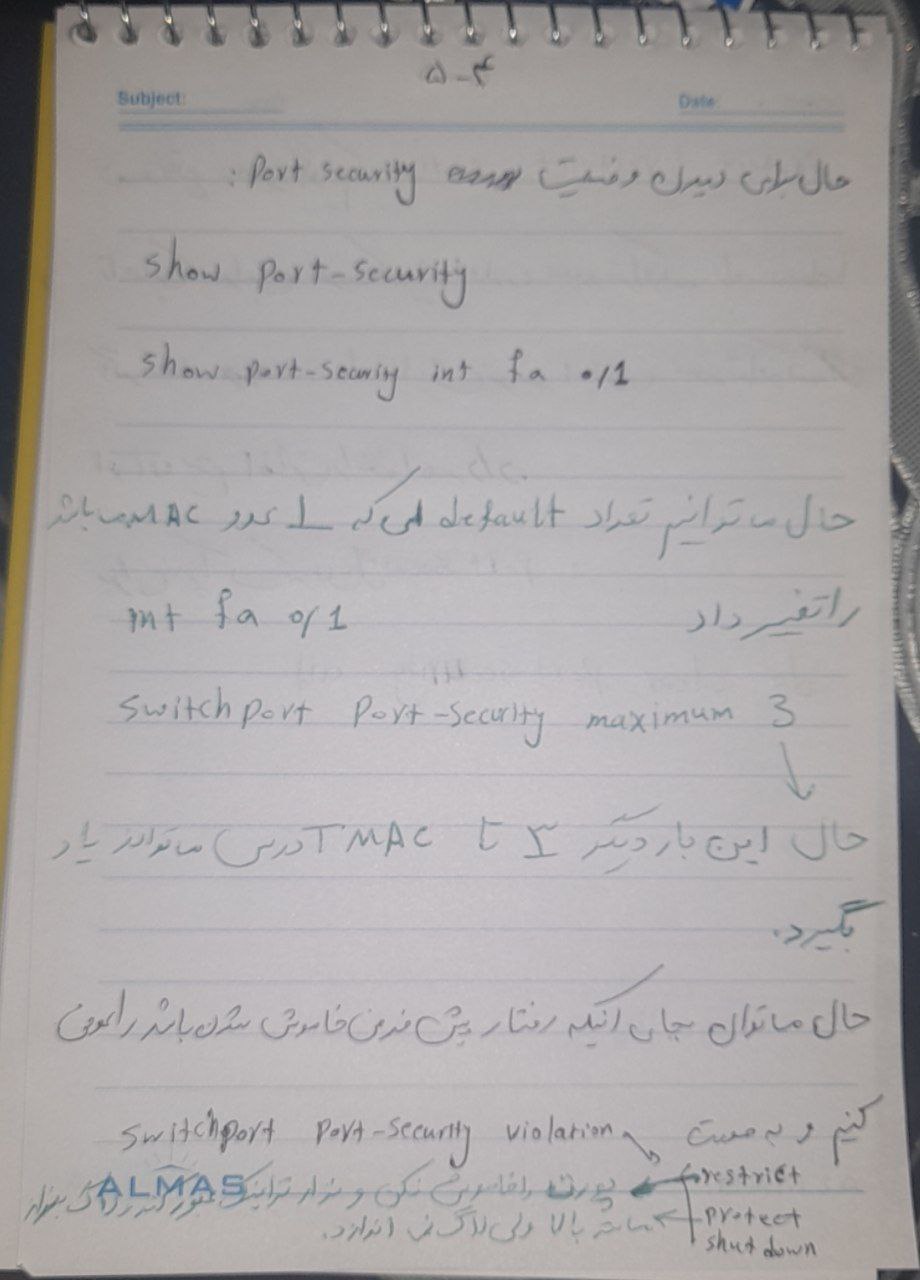 ۵-۴
Subject:
Date
حال برای دیدن وضعیت Port security :
show port-security
show port-security int fa 0/1
حال می توانیم تعداد default که 1 عدد MAC می باشد
را تغییر داد
int fa 0/1
switchport port-security maximum 3
حال این بار دیگر ۳ تا MAC آدرس می تواند یاد
بگیرد.
حال می توان بجای اینکه رفتار پیش فرض خاموش شدن باشد را عوض
کنیم و به صورت switchport port-security violation
restrict
پورت را خاموش نکن و نذار ترافیک
ALMAS
protect
بالا ولی لاگ نمی اندازد.
shutdown